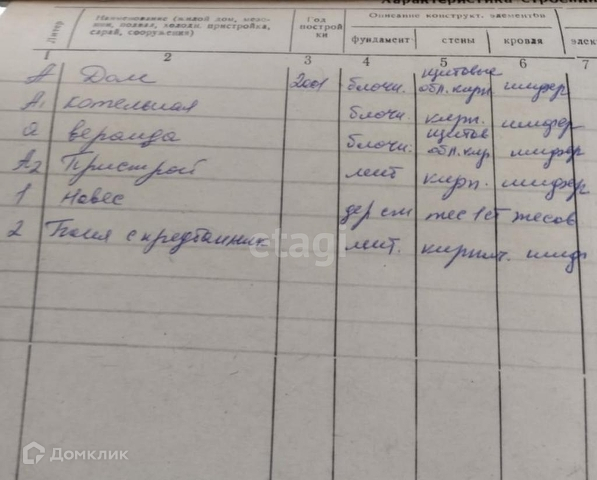 Характеристика строений
Литер
Наименование (жилой дом, мезо-
нин, подвал, холодн. пристройка,
сарай, сооружения)
Год
построй
ки
Описание конструкт. элементов
фундамент
стены
кровля
элек
1 2 3 4 5 6 7
А Дом 2001 блочн. щитовые обл. кирп. шифер
А1 котельная блочн. кирп. шифер
а веранда блочн. щитов обл. кир шифер
А2 Пристрой лент кирп. шифер
1 Навес дер ст жес
2 Баня с предбанник лент. кирпич. шиф
etagi
Домклик